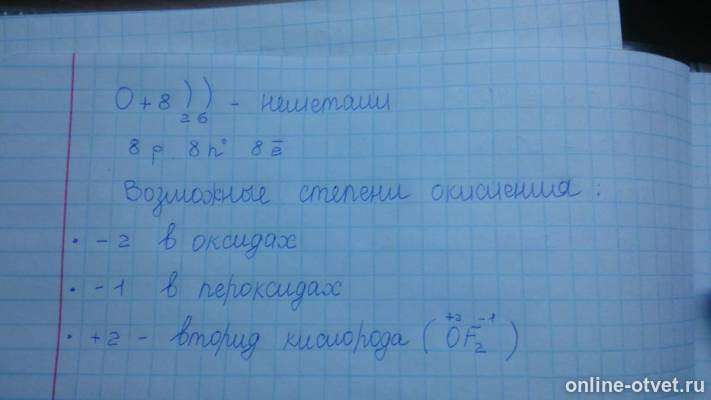 O +8 ) ) - неметалл
2 6
8 p 8 n° 8 ē
Возможные степени окисления:
• -2 в оксидах
• -1 в пероксидах
• +2 - вторид кислорода ( +2 -1 OF₂ )
online-otvet.ru